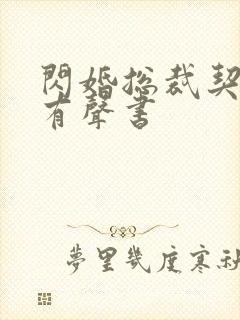 閃婚總裁契
有聲書
夢里幾度寒秋